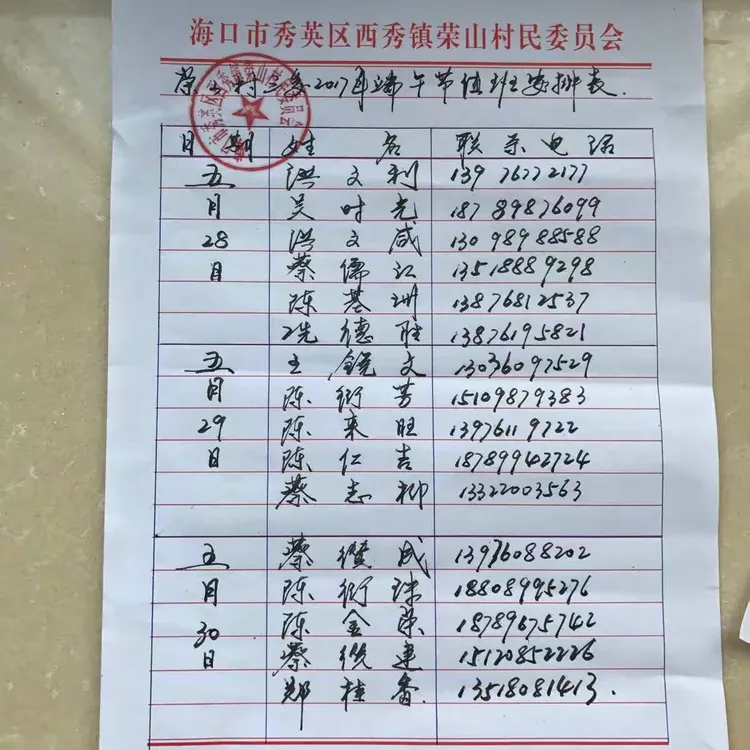 海口市秀英区西秀镇荣山村民委员会
荣山村三委2017年端午节值班安排表.
日 期 姓 名 联系电话
五月28日 洪文利 13976772177
吴时光 18789876099
洪文咸 13098988588
蔡儒江 13518889298
陈基圳 13876812537
冼德胜 13876195821
五月29日 王锐文 13036097529
陈衍芳 15109879383
陈来旺 13976119722
陈仁吉 18789942724
蔡志柳 13322003563
五月30日 蔡缵成 13976088202
陈衍珠 18808995276
陈金荣 18789675742
蔡继建 15120852226
郑桂香 13518081413.